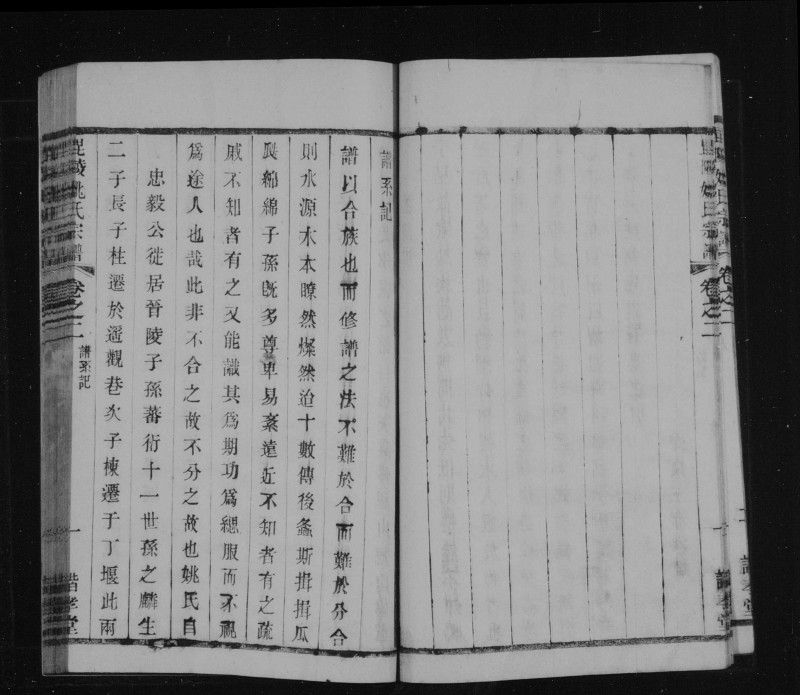 毘陵姚氏宗譜
卷之二
一
譜系記
譜以合族也而修譜之法不難於合而難於分合
則水源木本瞭然燦然迨十數傳後螽斯揖揖瓜
瓞綿綿子孫旣多尊卑易紊遠近不知者有之疏
戚不知者有之又能識其爲期功爲緦服而不視
爲途人也哉此非不合之故不分之故也姚氏自
忠毅公徙居晉陵子孫蕃衍十一世孫之麟生
二子長子柱遷於遥觀巷次子棟遷于丁堰此兩
毘陵姚氏宗譜
卷之二
譜系記
一
諧孝堂